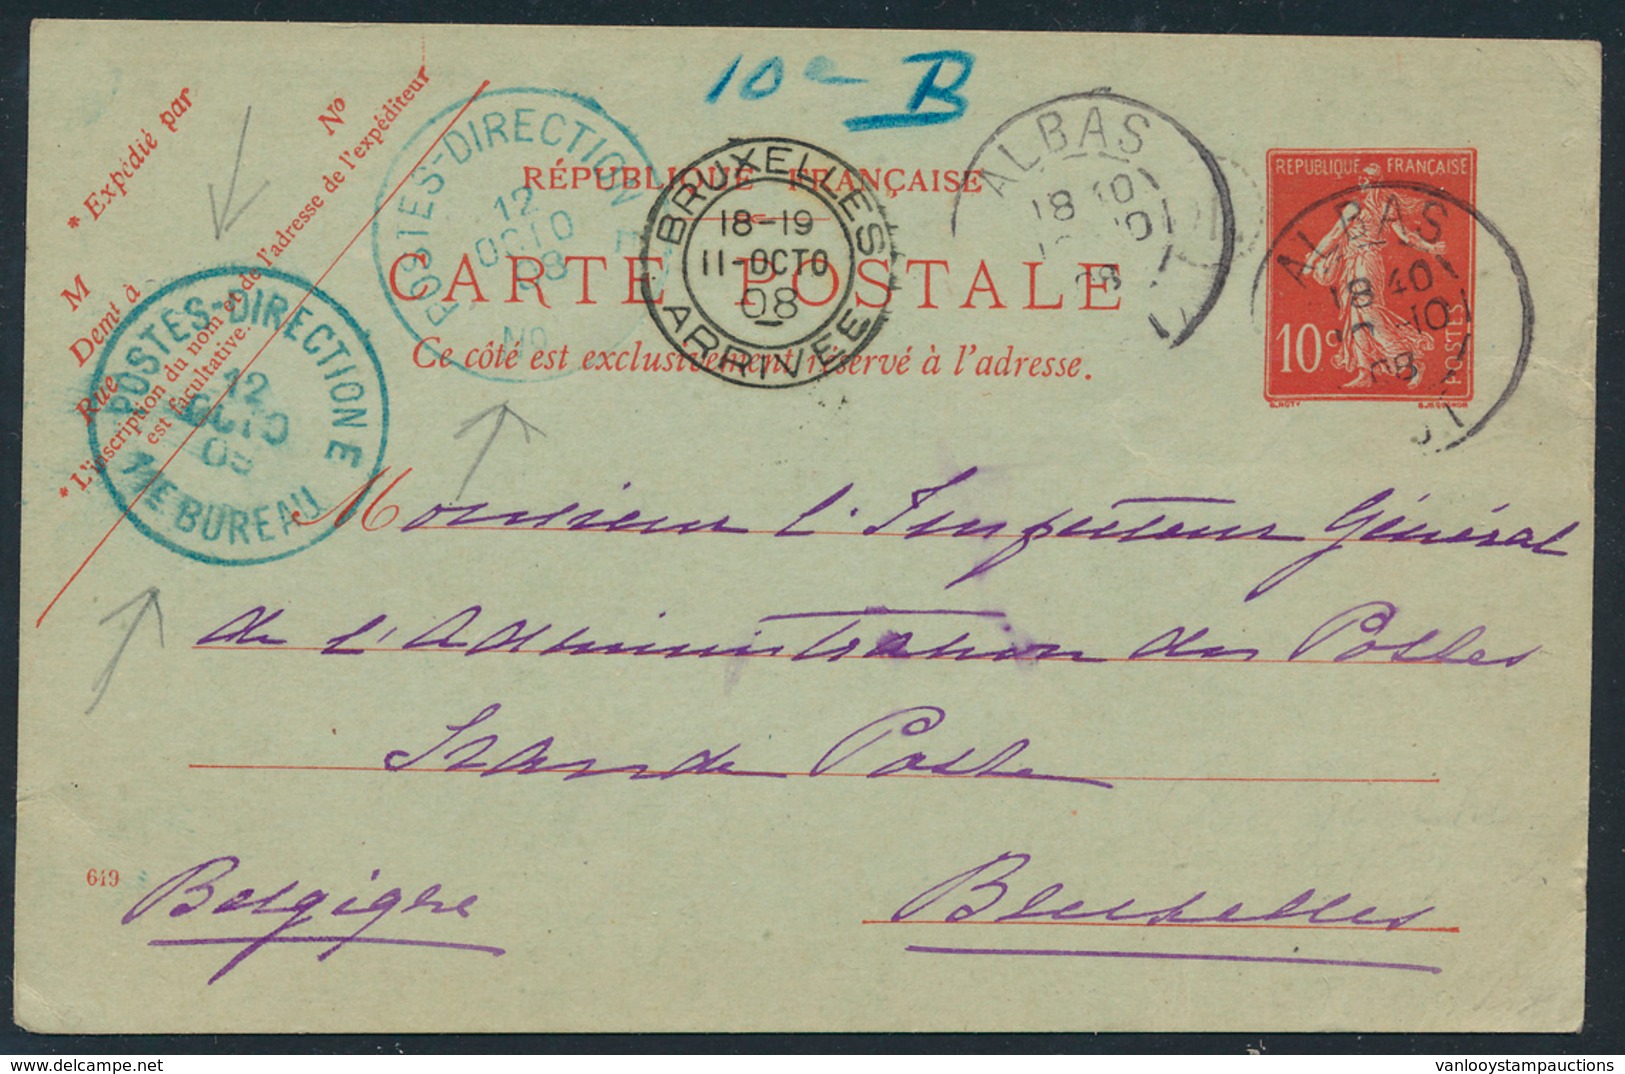 10e B
* Expédié par
No
M
Demt à
Rue
* L'inscription du nom et de l'adresse de l'expéditeur
est facultative.
POSTES-DIRECTION E
12
OCTO
08
No
BRUXELLES
18-19
11-OCTO
08
ARRIVÉE
ALBAS
18 40
10
08
LOT
RÉPUBLIQUE FRANÇAISE
CARTE POSTALE
Ce côté est exclusivement réservé à l'adresse.
REPUBLIQUE FRANÇAISE
10c
POSTES
ALBAS
18 40
10-10
08
LOT
POSTES-DIRECTION E
12
OCTO
08
11E BUREAU
Monsieur l'Inspecteur Général
de l'Administration des Postes
Grande Poste
649
Belgique
Bruxelles
vanlooystampauctions